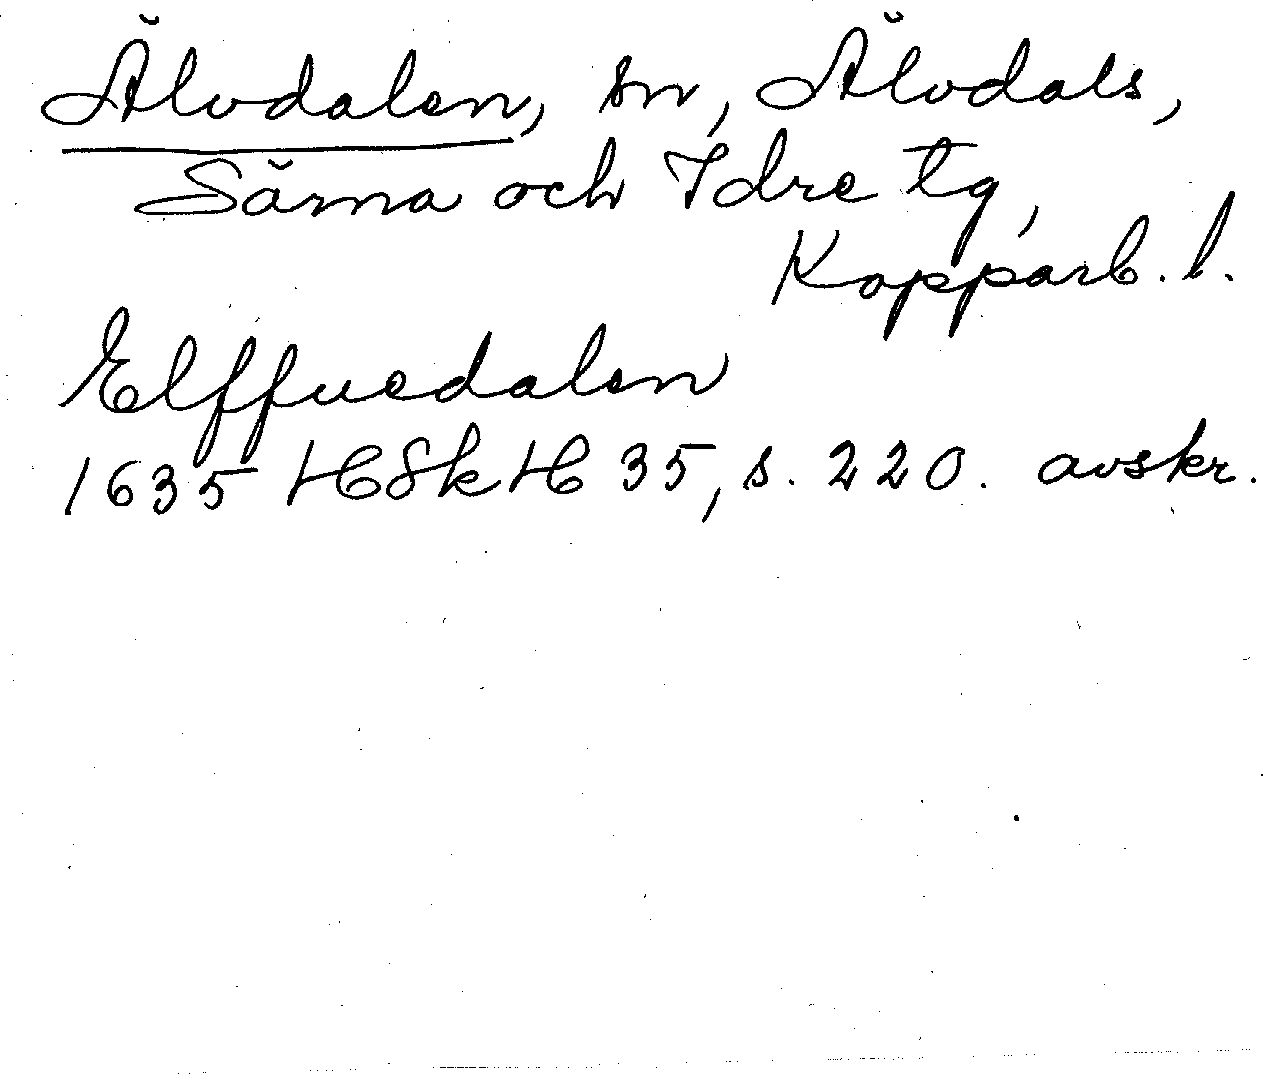 Älvdalen, sn, Älvdals,
Särna och Idre tg,
Kopparb. l.
Elffuedalen
1635 HSkH 35, s. 220. avskr.